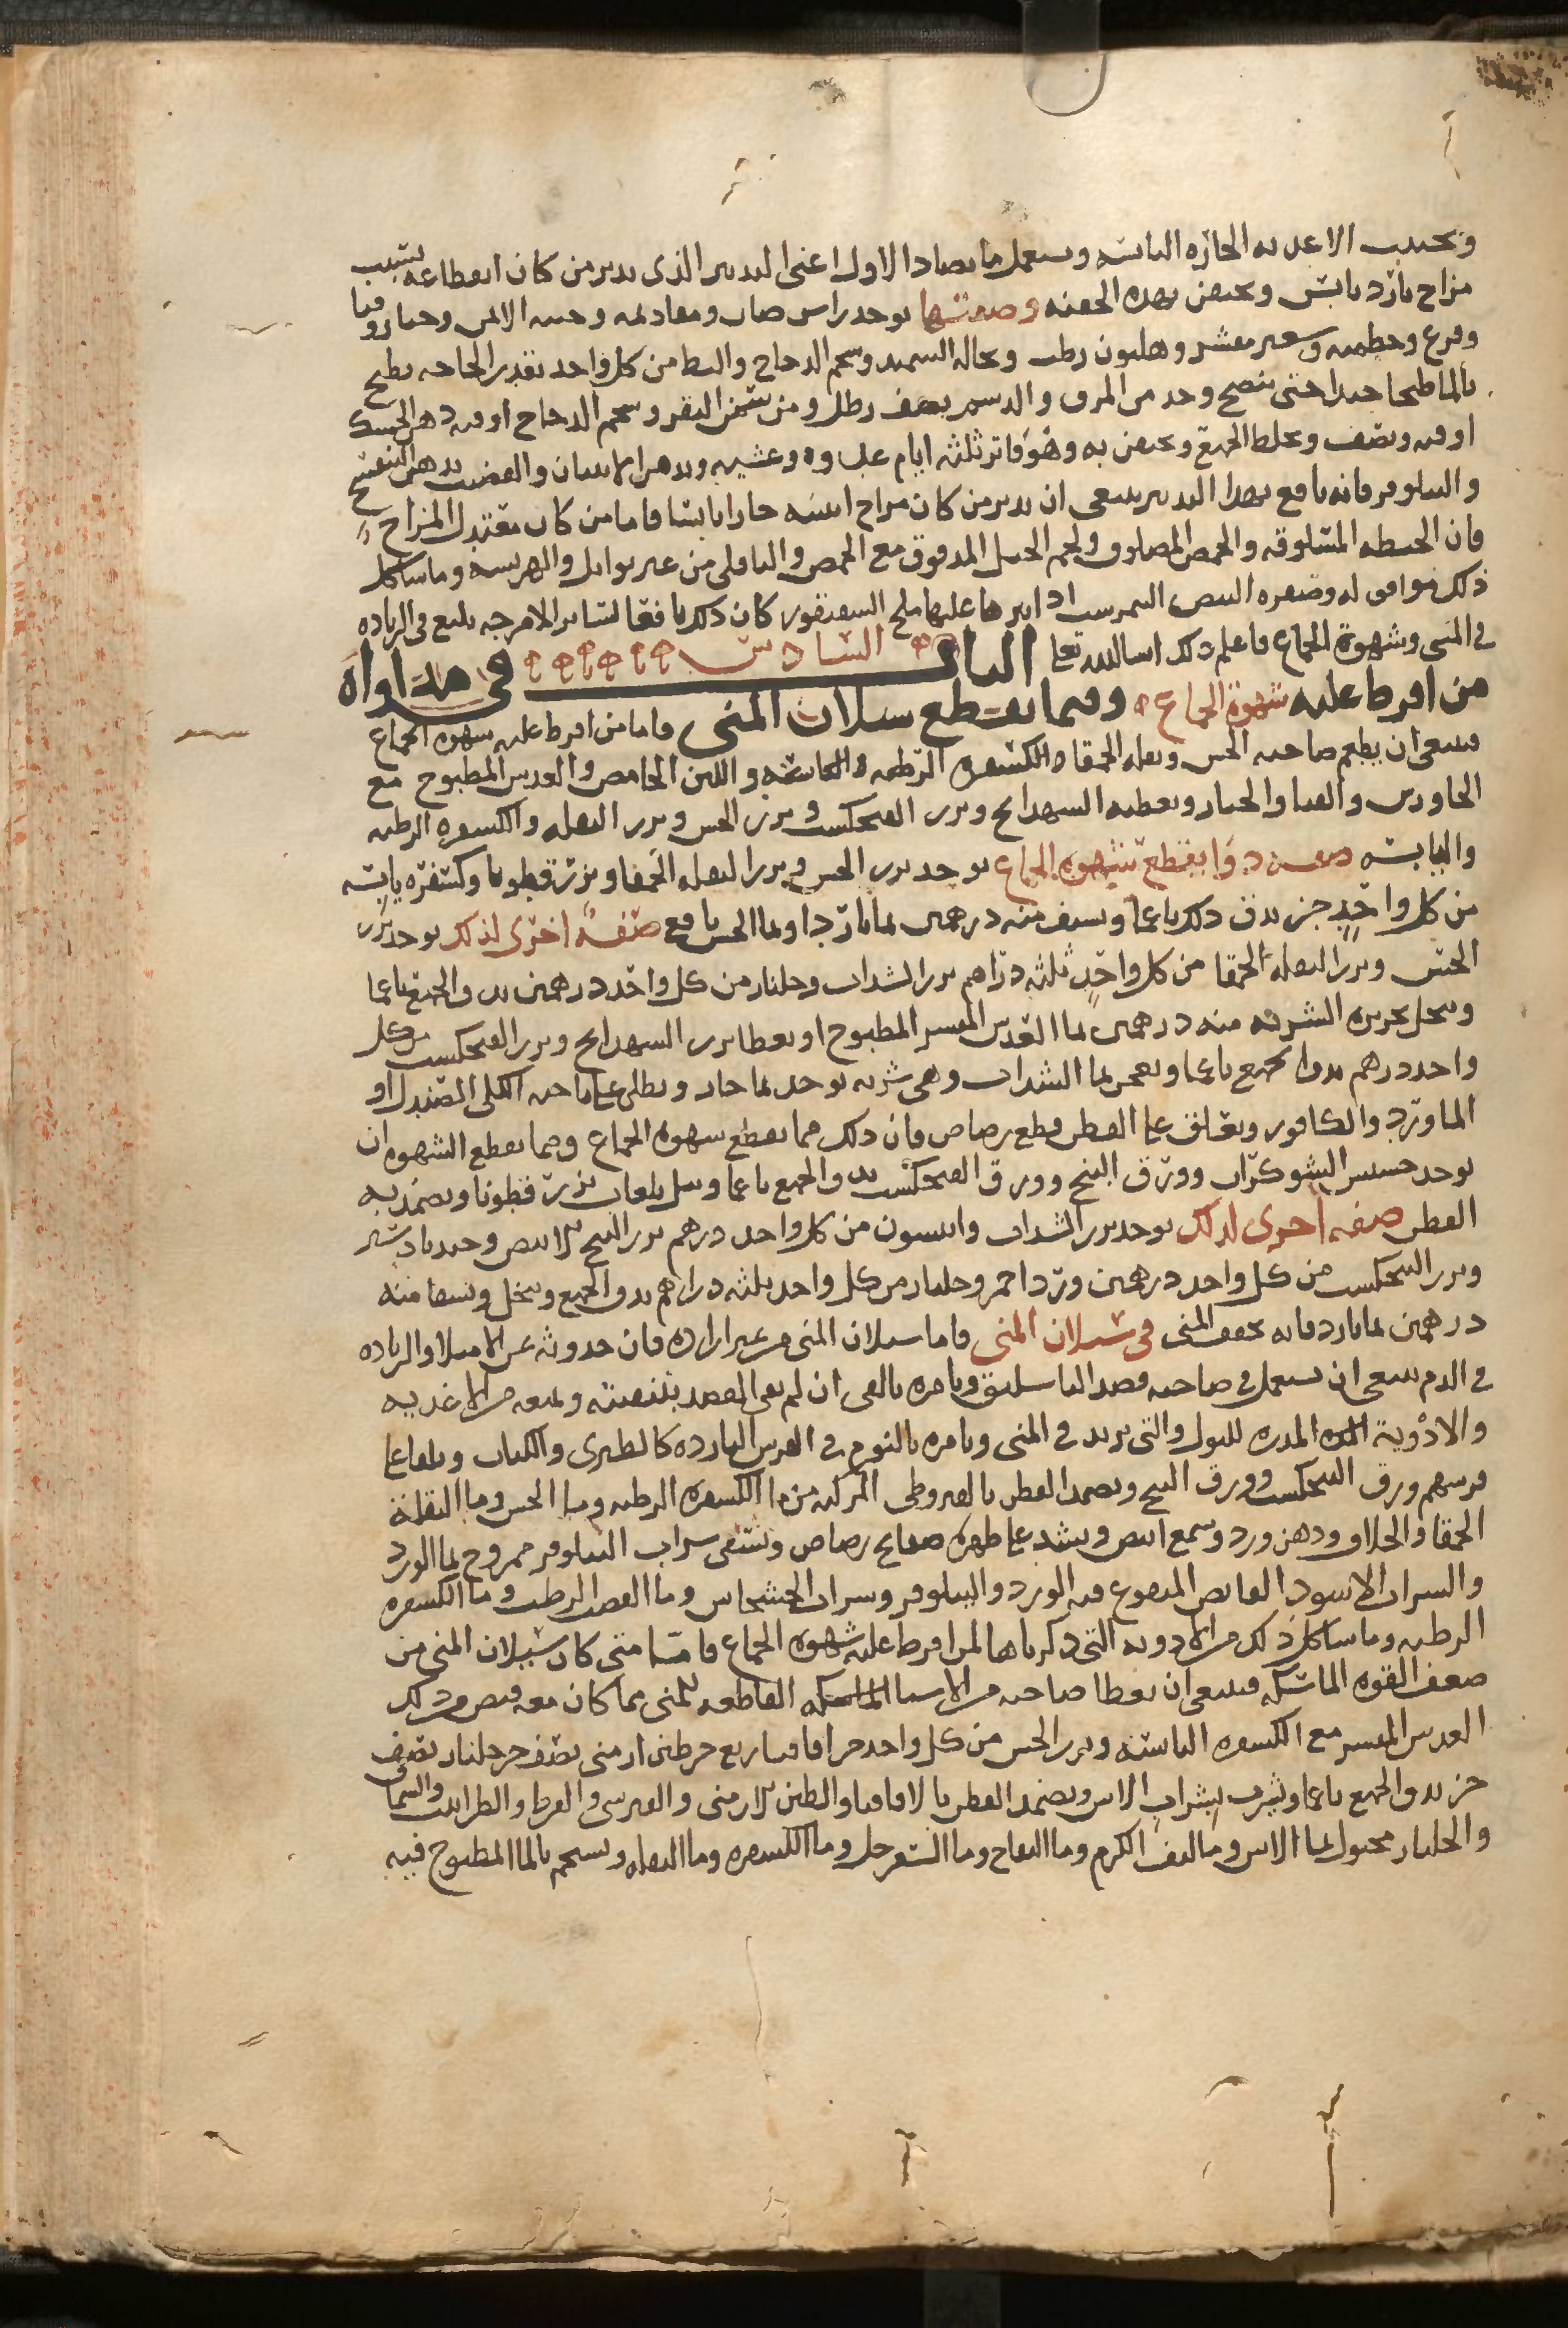 وتجتنب الاغذيه الحارّه اليابسه ويستعمل ما يضاد الاول اعنى التدبير الذى يدبر من كان انقطاعه بسبب
مزاج بارد يابس ويحقن بهذه الحقنه وصفتها يوخذ راس ضان ومقادمه وحسه الالس وخبازى
وقرع وخطميه وشعير مقشر وهليون رطب ونخالة السميد وشحم الدجاج والبط من كل واحد بقدر الحاجه يطبخ
بالما طبخا جيدا حتى ينضج وخذ من المرق والدسم نصف رطل ومن سمن البقر وشحم الدجاج اوقيه دهن الحسك
اوقيه ونصف ويخلط الجميع ويحقن به وهو فاتر ثلثه ايام غدوه وعشيه ويدهن الانثيان والقضيب بدهن البنفسج
والنيلوفر فانه نافع بهذا التدبير ينبغى ان يدبر من كان مزاج انثييه حارا يابسا فاما من كان معتدل المزاج
فان الحنطه المسلوقه والحمص المصلوق ولحم الحمل المدقوق مع الحمص والباقلى من غير توابل والهريسه وما شاكل
ذلك موافق له وصفرة البيض النمرشت اذا نثر عليها ملح السقنقور كان ذلك نافعا لساير الامزجه بليغ فى الزياده
فى المنى وشهوة الجماع فاعلم ذلك ان شا الله تعا الباب السادس فى مداواة
من افرط عليه شهوة الجماع وفيما يقطع سيلان المنى فاما من افرط عليه شهوه الجماع
فينبغى ان يطعم صاحبه الخس وبقله الحمقا والكسفره الرطبه واليابسه واللبن الحامض والعدس المطبوخ مع
الجاورس والقثا والخيار ويعطيه الشهدانج وبزر الفنجكشت وبزر الخس وبزر البقله والكسفره الرطبه
واليابسه صفة دوا يقطع شهوه الجماع يوخذ بزر الخس وبزر البقله الحمقا وبزر قطونا وكسفره يابسه
من كل واحد جز يدق ذلك ناعما ويسف منه درهمين بما بارد او بما الخس نافع صفه اخرى لذلك يوخذ بزر
الخس وبزر البقله الحمقا من كل واحد ثلثه دراهم بزر السداب وجلنار من كل واحد درهمين يدق الجميع ناعما
وينخل بحريره الشربه منه درهمين بما العدس المقشر المطبوخ او يعطا بزر الشهدانج وبزر الفنجكشت من كل
واحد درهم يدق الجميع ناعما ويعجن بما السداب وهى شربه يوخذ بما حار ويطلى على ناحيه الكلى الصندل او
الماورد والكافور ويعلق على القطن قطع رصاص فان ذلك مما يقطع شهوه الجماع ومما يقطع الشهوه ان
يوخذ حشيش الشوكران وورق البنج وورق الفنجكشت يدق الجميع ناعما ويبل بلعاب بزر قطونا ويضمد به
القطن صفه اخرى لذلك يوخذ بزر السداب وانيسون من كل واحد درهم بزر البنج الابيض وجندبادستر
وبزر الفنجكشت من كل واحد درهمين ورد احمر وجلنار من كل واحد ثلثه دراهم يدق الجميع وينخل ويسقا منه
درهمين بما بارد فانه يجفف المنى فى سيلان المنى فاما سيلان المنى من غير اراده فان حدوثه عن الامتلا والزياده
فى الدم ينبغى ان يستعمل فى صاحبه فصد الباسليق ويامره بالقى ان لم يفى الفصد بتنقيته ويمنعه من الاغذيه
والادوية المدره للبول والتى تزيد فى المنى ويامره بالنوم فى الفرش البارده كالطبرى والكتان ويلقا على
فرشهم ورق الفنجكشت وورق البنج ويضمد القطن بالقيروطى المركبه من ما الكسفره الرطبه وما الخس وما البقلة
الحمقا والخلاف ودهن ورد وشمع ابيض ويشد على ظهره صفايح رصاص ويسقى شراب النيلوفر ممزوج بما الورد
والشراب الاسود القابض المنقوع فيه الورد والنيلوفر وشراب الخشخاش وما القصب الرطب وما الكسفره
الرطبه وما شاكل ذلك من الادويه التى ذكرناها لمن افرط عليه شهوه الجماع فاما متى كان سيلان المنى من
ضعف القوه الماسكه فينبغى ان يعطا صاحبه من الاشيا القاطعه للمنى مما كان معه قبض من ذلك
العدس المقشر مع الكسفره اليابسه وبزر الخس من كل واحد جز اقاقيا ربع جز طين ارمنى نصف جز جلنار نصف
جز يدق الجميع ناعما ويشرب بشراب الاس ويضمد القطن بالاقاقيا والطين الارمنى والقبرسى والقرط والطراثيث والسماق
والجلنار مجبول بما الاس وما ليف الكرم وما التفاح وما السفرجل وما الكسفره وما البقله ويستحم بالما المطبوخ فيه